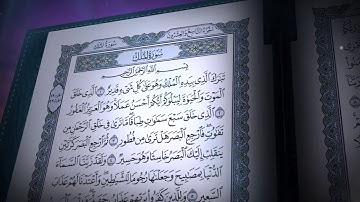 سورة الملك
الجزء التاسع والعشرون
سورة الملك
بسم الله الرحمن الرحيم
تبارك الذي بيده الملك وهو على كل شيء قدير ١ الذي خلق
الموت والحياة ليبلوكم أيكم أحسن عملا وهو العزيز الغفور
٢ الذي خلق سبع سماوات طباقا ما ترى في خلق الرحمن من
تفاوت فارجع البصر هل ترى من فطور ٣ ثم ارجع البصر كرتين
ينقلب إليك البصر خاسئا وهو حسير ٤ ولقد زينا السماء
الدنيا بمصابيح وجعلناها رجوما للشياطين وأعتدنا لهم عذاب
السعير ٥ وللذين كفروا بربهم عذاب